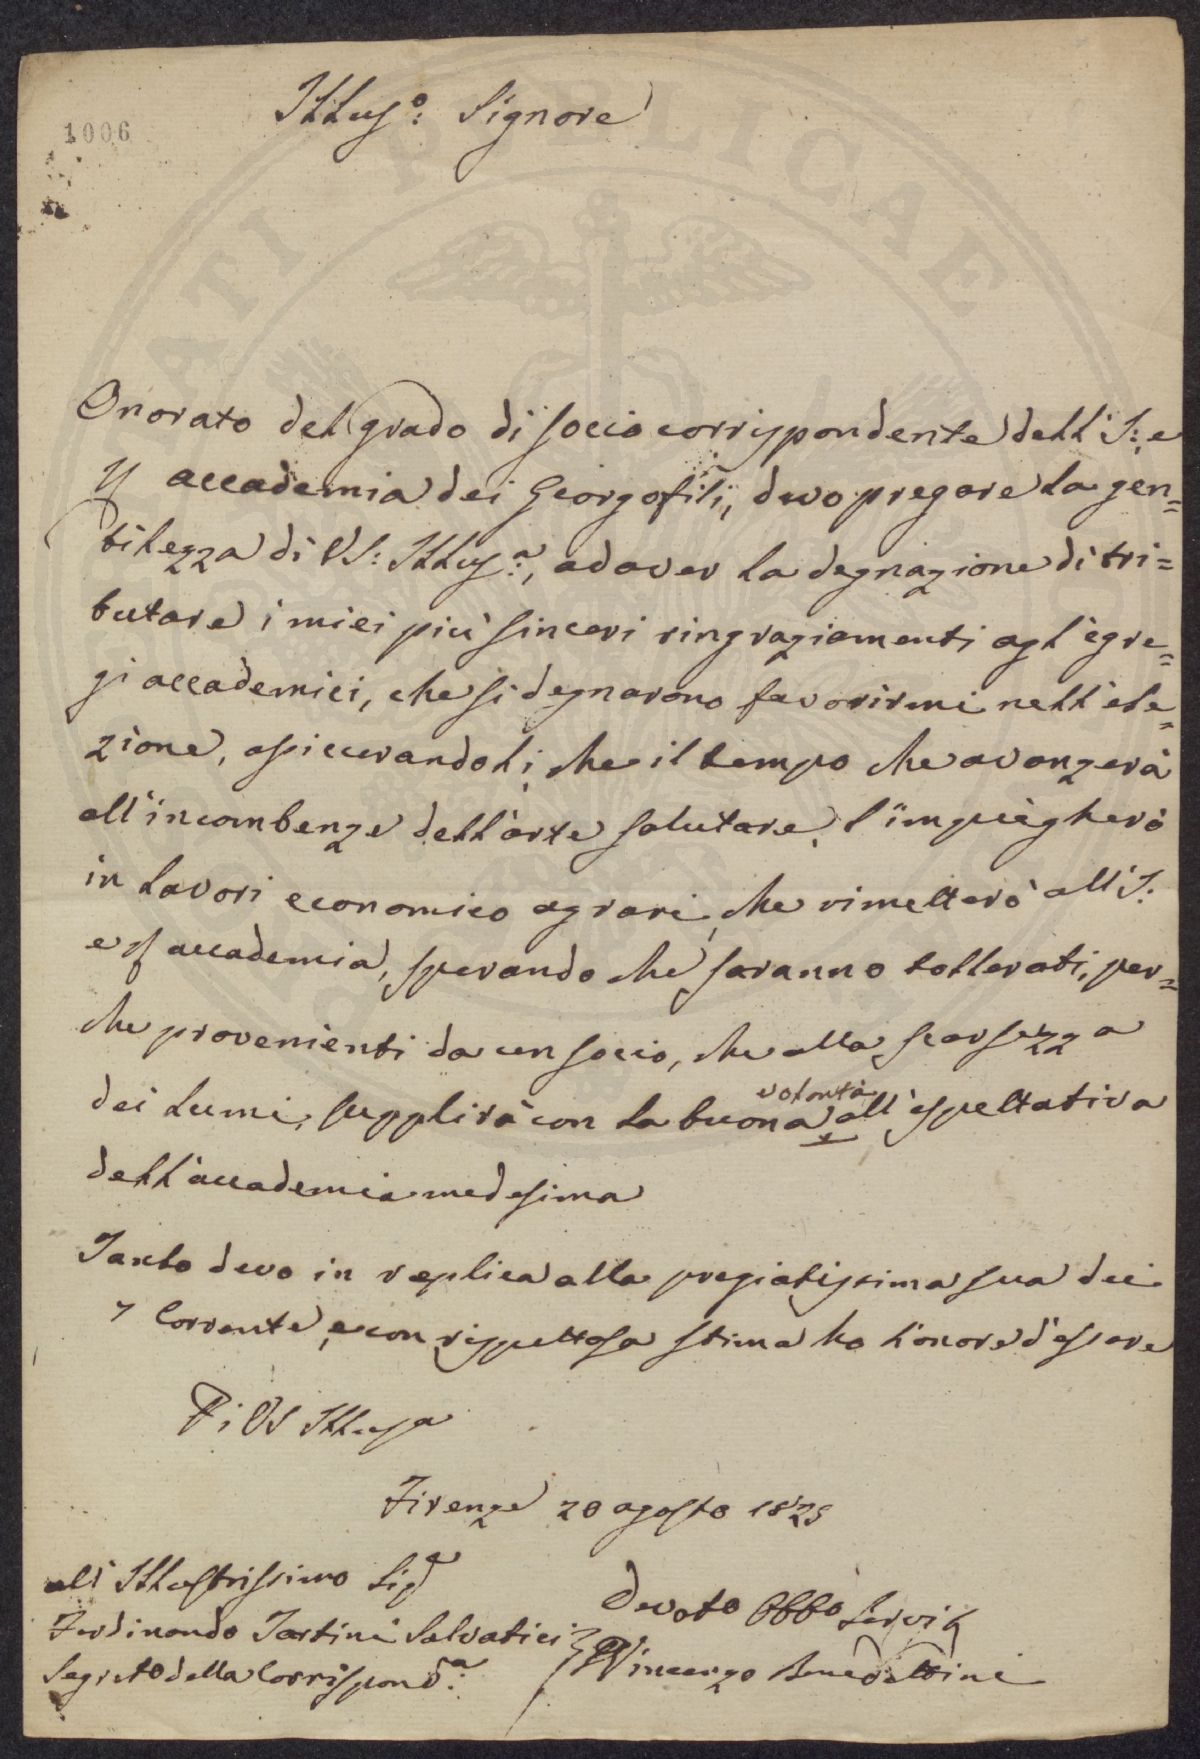 1006
Illus.º: Signore
Onorato del grado di socio corrispondente dell'I: e
R accademia dei Georgofili, devo pregare la gen=
tilezza di VS: Illus.ª:, ad aver la degnazione di tri=
butare i miei più sinceri ringraziamenti agl'egre=
gi accademici, che si degnarono favorirmi nell'ele=
zione, assicurandoli, che il tempo che avanzerà
all'incombenze dell'arte salutare, l'impiegherò
in lavori economico agrari, che rimetterò all'I:
e R accademia, sperando che saranno tollerati, per=
che provenienti da un socio, che alla scarsezza
dei lumi, supplirà con la buona volontà all'espettativa
dell'accademia medesima
Tanto devo in replica alla pregiatissima sua dei
7 Corrente, e con rispettosa stima ho l'onore d'essere
Di VS Illusa
Firenze 20 agosto 1825
all'Illustrissimo Sig.
Ferdinando Tartini Salvatici
Segreto della Corrispond.ª:
Devoto Obbo Servi
Vincenzo Benedettini
PUBLICAE